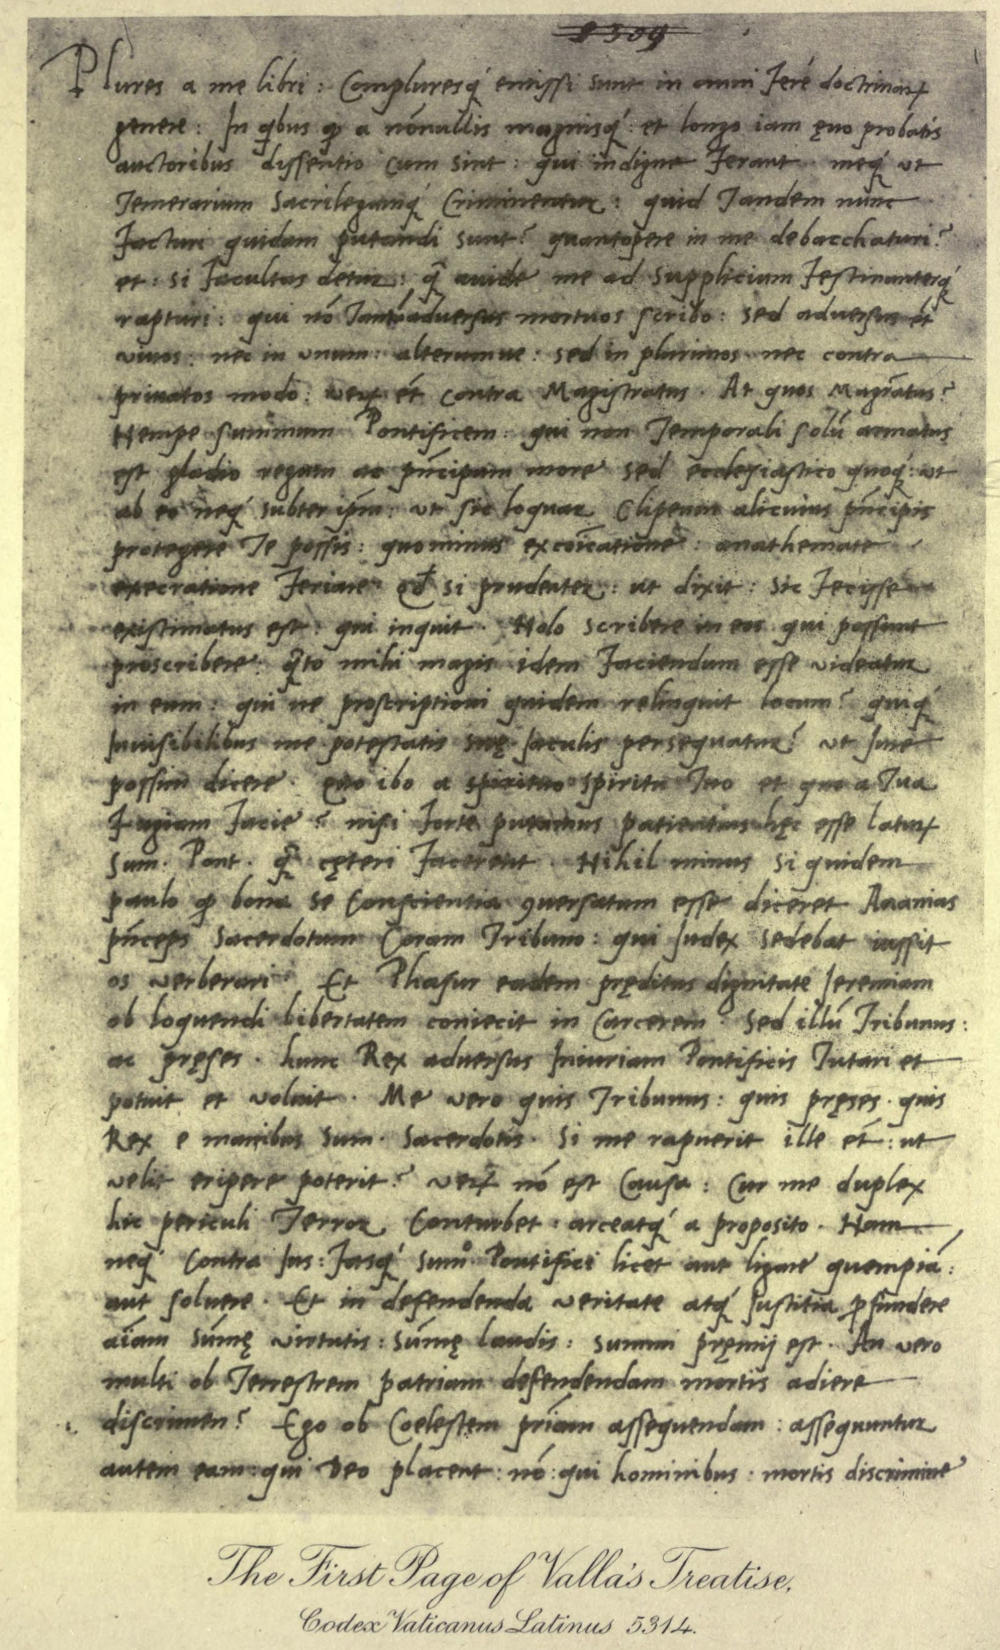 2309
Plures a me libri : Compluresq́ emissi sunt in omni Feré doctrinaꝝ
genere : In qͥbus ꝙ a nónullis magnisq́ : et longo iam ęuo probatis
auctoribus dissentio cum sint : qui indigne Ferant meq́ ut
Temerarium Sacrilegumq́ Criminentur : quid Tandem nunc
Facturi quidam putandi sunt ? quantopere in me debacchaturi ?
et : si Facultas detur : q̃ auide me ad supplicium Festinanterq́
rapturi : qui nó Tantú adversus mortuos scribo : sed adversus et
vivos : nec in unum : alterumve : sed in plurimos nec contra
privatos modo : veꝝ ét contra Magistratus . At quos magr̃atus ?
Nempe summum Pontificem : qui non Temporali solú armatus
est gladio regum ac pn̄cipum more sed ecclesiastico quoq́ : ut
ab eo neq́ subter ip̄m : ut sic loquar Clipeum alicuius pn̄cipis
protegere Te possis : quominus excoīcatione : anathemate
execratione Feriare . qđ si prudenter : ut dixit : sic Fecisse
existimatus est : qui inquit . Nolo scribere in eos qui possunt
proscribere : q̃to mihi magis idem Faciendum esse videatur
in eum : qui ne proscriptioni quidem relinquit locum ? quiq́
Invisibilibus me potestatis suę Jaculis persequatur ? ut Jure
possim dicere . Quo ibo a spiritu Tuo et quo a Tua
Fugiam Facie ? nisi Forte putamus patientius hęc esse latuꝝ
Sum . Pont . q̃ cęteri Facerent . Nihil minus siquidem
paulo ꝙ bona se Conscientia ꝯversatum esse diceret Ananias
pn̄ceps Sacerdotum Coram Tribuno : qui Judex sedebat iussit
os verberari . Et Phasur eadem pręditus dignitate Jeremiam
ob loquendi libertatem coniecit in Carcerem . Sed illú Tribunus :
ac pręses . hunc Rex adversus Iniuriam Pontificis Tutari et
potuit et voluit . Me vero quis Tribunus : quis pręses . quis
Rex e manibus Sum . Sacerdotis . Si me rapuerit ille ét : ut
velit eripere poterit ? veꝝ nó est Causa : Cur me duplex
hic periculi Terror Conturbet : arceatq́ a proposito . Nam
neq́ Contra Jus : Fasq́ Sumº Pontifici licet aut ligare quempiá :
aut solvere . Et in defendenda veritate atq́ Justitia ꝓfundere
aīam súmę virtutis : súmę laudis : summi pręmij est . An vero
multi ob Terrestrem patriam defendendam mortis adiere
discrimen ? Ego ob Coelestem pr̄iam assequendam : assequuntur
autem eam : qui Deo placent : nó : qui hominibus : mortis discrimine
The First Page of Valla's Treatise,
Codex Vaticanus Latinus 5314.